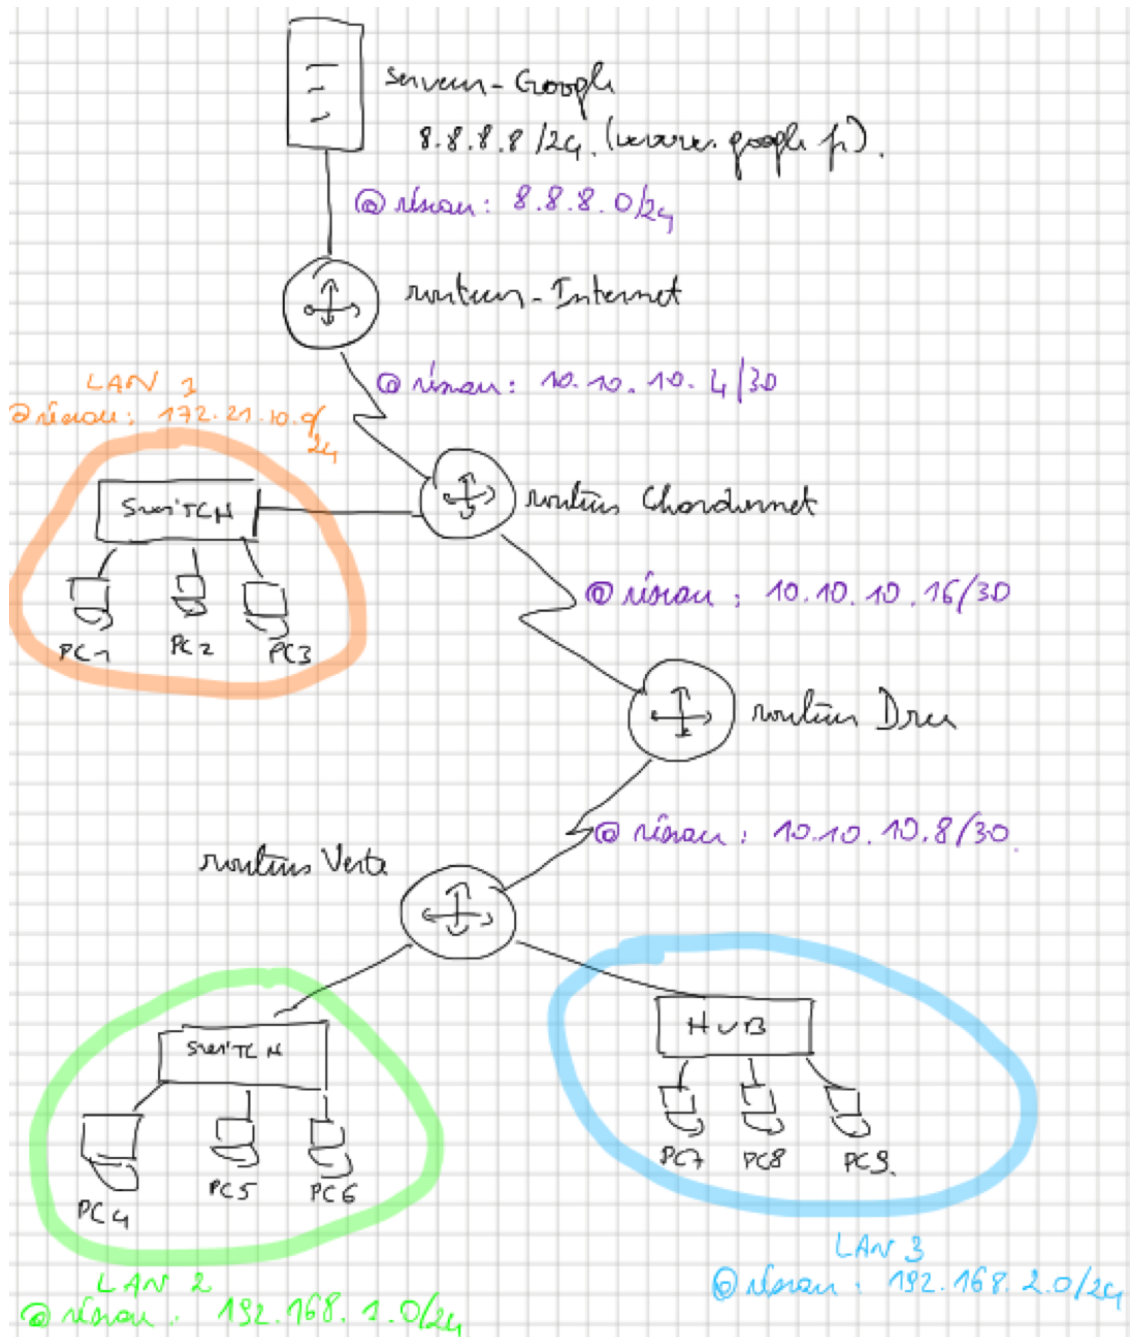 Serveur-Google
8.8.8.8/24. (www.google.fr).
@ réseau: 8.8.8.0/24
routeur-Internet
@ réseau: 10.10.10.4/30
LAN 1
@ réseau: 172.21.10.0/
24
SWITCH
routeur Chardonnet
PC1
PC2
PC3
@ réseau: 10.10.10.16/30
routeur Dru
@ réseau: 10.10.10.8/30.
routeur Verte
SWITCH
HUB
PC4
PC5
PC6
PC7
PC8
PC9.
LAN 2
@ réseau: 192.168.1.0/24
LAN 3
@ réseau: 192.168.2.0/24